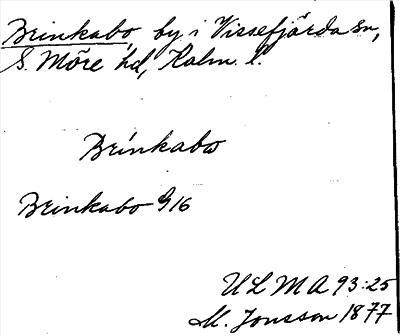 Brinkabo, by i Vissefjärda sn,
S. Möre hd, Kalm. l.
Brinkabo
Brinkabo G16
ULMA 93:25
M. Jonsson 1877